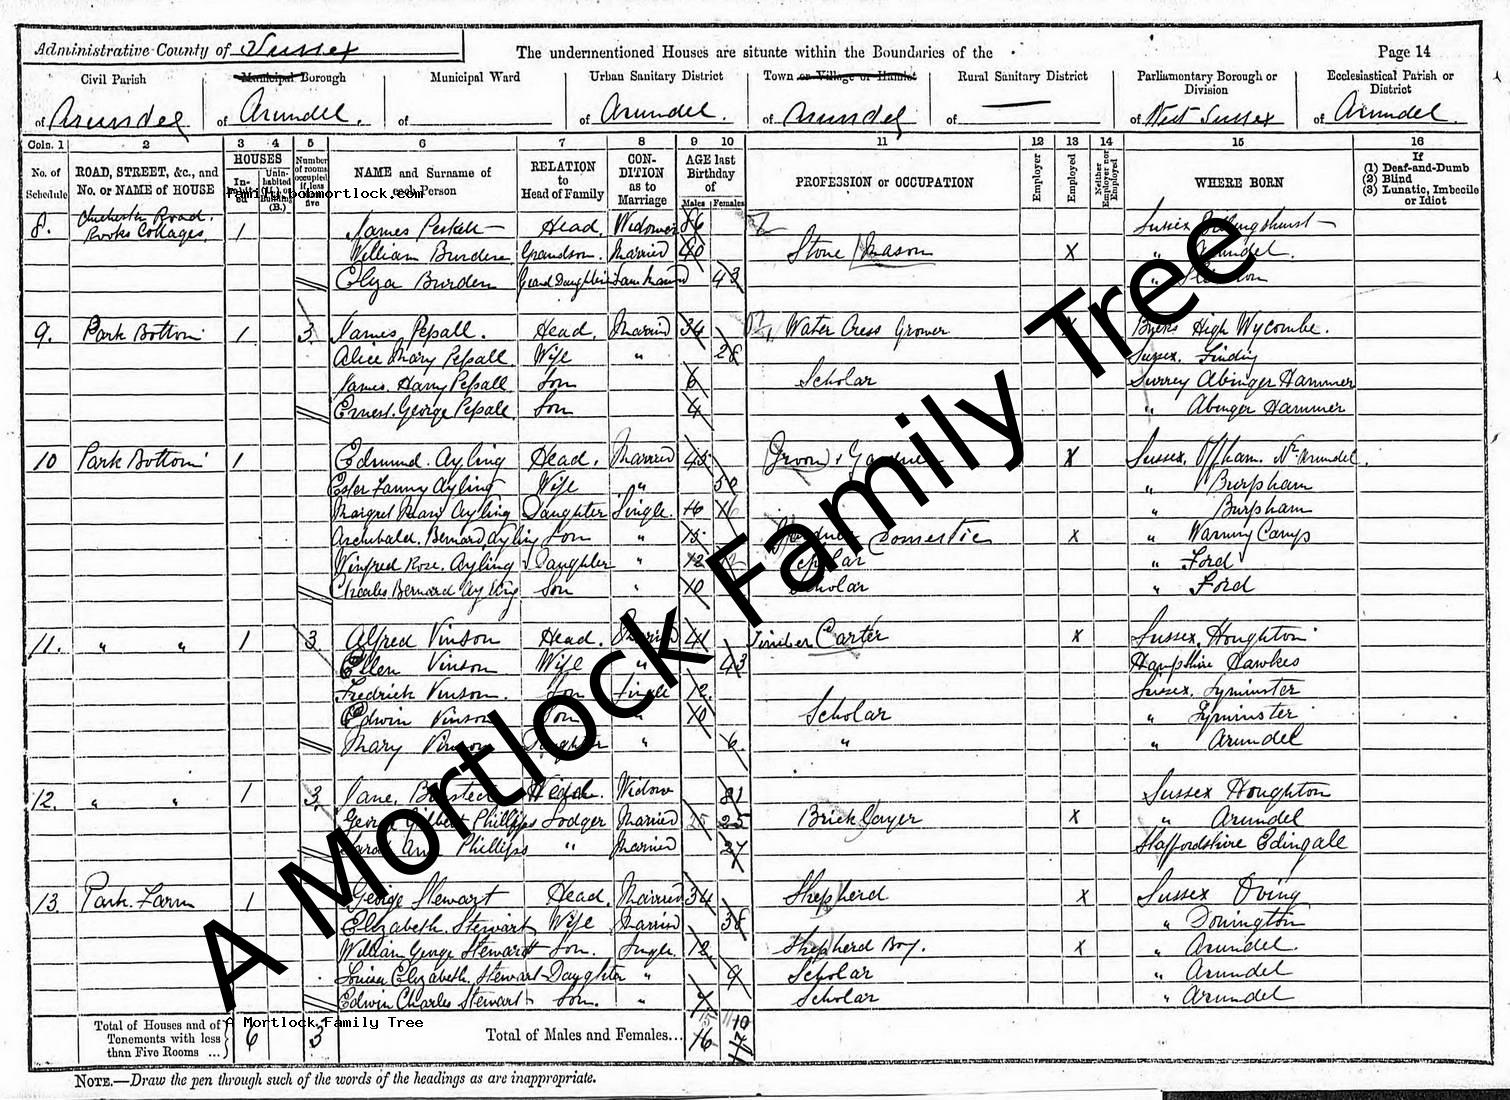 Administrative County of Sussex
The undermentioned Houses are situate within the Boundaries of the
Page 14
Civil Parish
of Arundel
Municipal Borough
of Arundel.
Municipal Ward
of
Urban Sanitary District
of Arundel.
Town or Village or Hamlet
of Arundel
Rural Sanitary District
of —
Parliamentary Borough or Division
of West Sussex
Ecclesiastical Parish or District
of Arundel.
Coln. 1 2 3 4 5 6 7 8 9 10 11 12 13 14 15 16
No. of Schedule
ROAD, STREET, &c., and No. or NAME of HOUSE
HOUSES
In-
Unin-habited
Number of rooms occupied if less than five
NAME and Surname of each Person
RELATION to Head of Family
CON-DITION as to Marriage
AGE last Birthday of
Males Females
PROFESSION or OCCUPATION
Employer
Employed
Neither Employer nor Employed
WHERE BORN
If
(1) Deaf-and-Dumb
(2) Blind
(3) Lunatic, Imbecile or Idiot
family.bobmortlock.com
8. Chichester Road. Rooks Cottages. 1 James Head. Widower 86 Sussex Billingshurst
William Burden Grandson. Married 40 Stone Mason X " Arundel.
Eliza Burden Grand Daughter 43 "
9. Park Bottom 1 3 James Pepall. Head. Married 34 Water Cress Grower X Bucks High Wycombe.
Alice Mary Pepall Wife " 28 Sussex. Findin
James. Harry Pepall Son 6 Scholar Surrey Abinger Hammer
Ernest. George Pepall Son 4 " Abinger Hammer
10 Park Bottom 1 Edmund. Ayling Head. Married 45 X Sussex. Offham. Nr Arundel.
Ester Fanny Ayling Wife " 50 " Burpham
Margret Ayling Daughter Single. 16 16 " Burpham
Archibald. Bernard Ayling Son " 15 Domestic X " Warning Camp
Winifred Rose. Ayling Daughter " 12 Scholar " Ford
Charles Bernard Ayling Son " 10 Scholar " Ford
11. " " 1 3 Alfred Vinson Head. Married 41 Timber Carter X Sussex. Houghton
Ellen Vinson Wife " 43 Hampshire Hawkes
Fredrick Vinson. Son Single 12 Sussex. Lyminster
Edwin Vinson Son " 10 Scholar " Lyminster
Mary Vinson Daughter " 6 " " Arundel
12. " " 1 3 Jane. Head. Widow 81 Sussex Houghton
George Gilbert Phillipps Lodger Married 25 25 Brick Layer X " Arundel
Sarah Ann Phillipps " Married 27 Staffordshire Edingale
13. Park. Farm 1 George Stewart Head. Married 34 Shepherd X Sussex Oving
Elizabeth. Stewart Wife Married 38 " Donington
William George Stewart Son. Single. 12 Shepherd Boy. X " Arundel.
Louisa Elizabeth. Stewart Daughter " 9 Scholar " Arundel
Edwin Charles Stewart Son. " 7 Scholar " Arundel
Total of Houses and of Tenements with less than Five Rooms ... 6 3
Total of Males and Females... 16 17
f Mortlock Family Tree
NOTE.—Draw the pen through such of the words of the headings as are inappropriate.
A Mortlock Family Tree